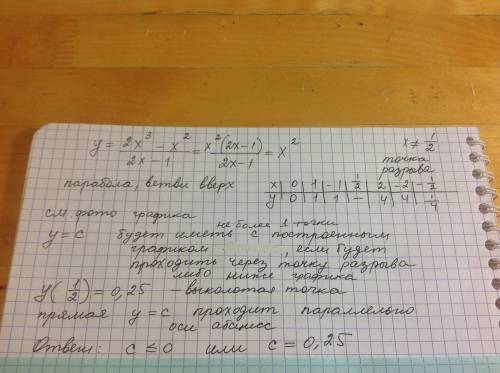 y = (2x³ - x²)/(2x - 1) = x²(2x-1)/(2x-1) = x²
x ≠ 1/2
точка
разрыва
парабола, ветви вверх
x | 0 | 1 | -1 | 1/2 | 2 | -2 | -1/2
y | 0 | 1 | 1 | - | 4 | 4 | 1/4
см. фото графика
не более 1 точки
y = c будет иметь с построенным
графиком, если будет
проходить через точку разрыва
либо ниже графика
y(1/2) = 0,25 выколотая точка
прямая y = c проходит параллельно
оси абсцисс
Ответ: c ≤ 0 или c = 0,25